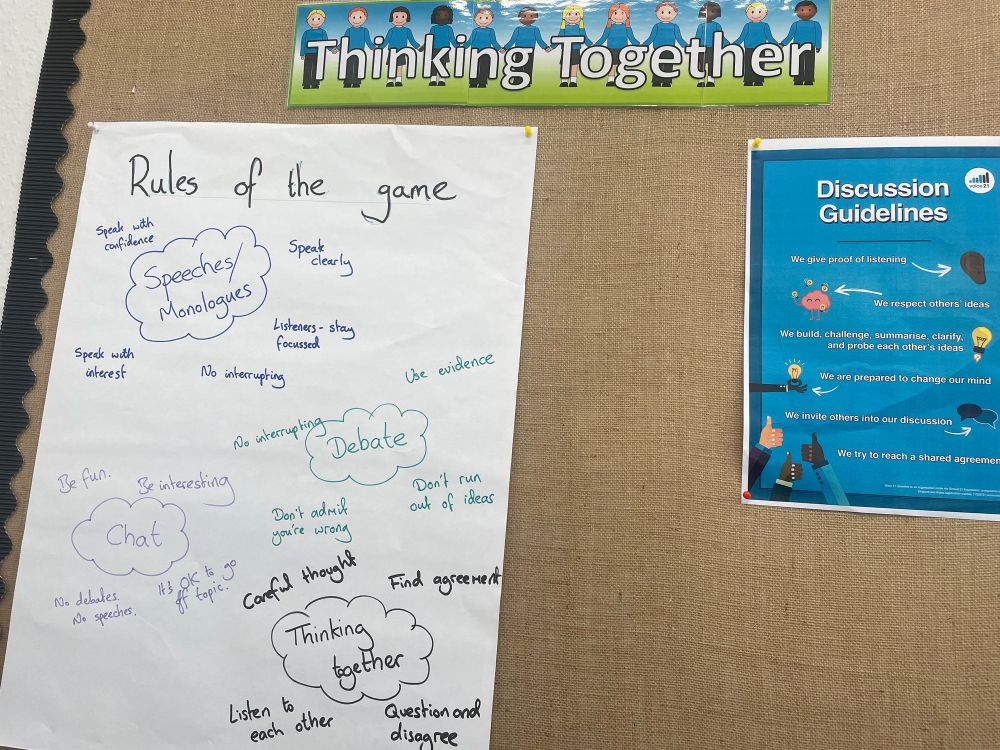 Thinking Together
Rules of the game
Speak with
confidence
Speeches/
Monologues
Speak
clearly
Listeners - stay
focussed
Speak with
interest
No interrupting
Use evidence
No interrupting
Debate
Don't run
out of ideas
Don't admit
you're wrong
Be fun.
Be interesting
Chat
No debates.
No speeches.
It's OK to go
off topic.
Careful thought
Find agreement
Thinking
together
Listen to
each other
Question and
disagree
voice 21
Discussion
Guidelines
We give proof of listening
We respect others' ideas
We build, challenge, summarise, clarify,
and probe each other's ideas
We are prepared to change our mind
We invite others into our discussion
We try to reach a shared agreemen